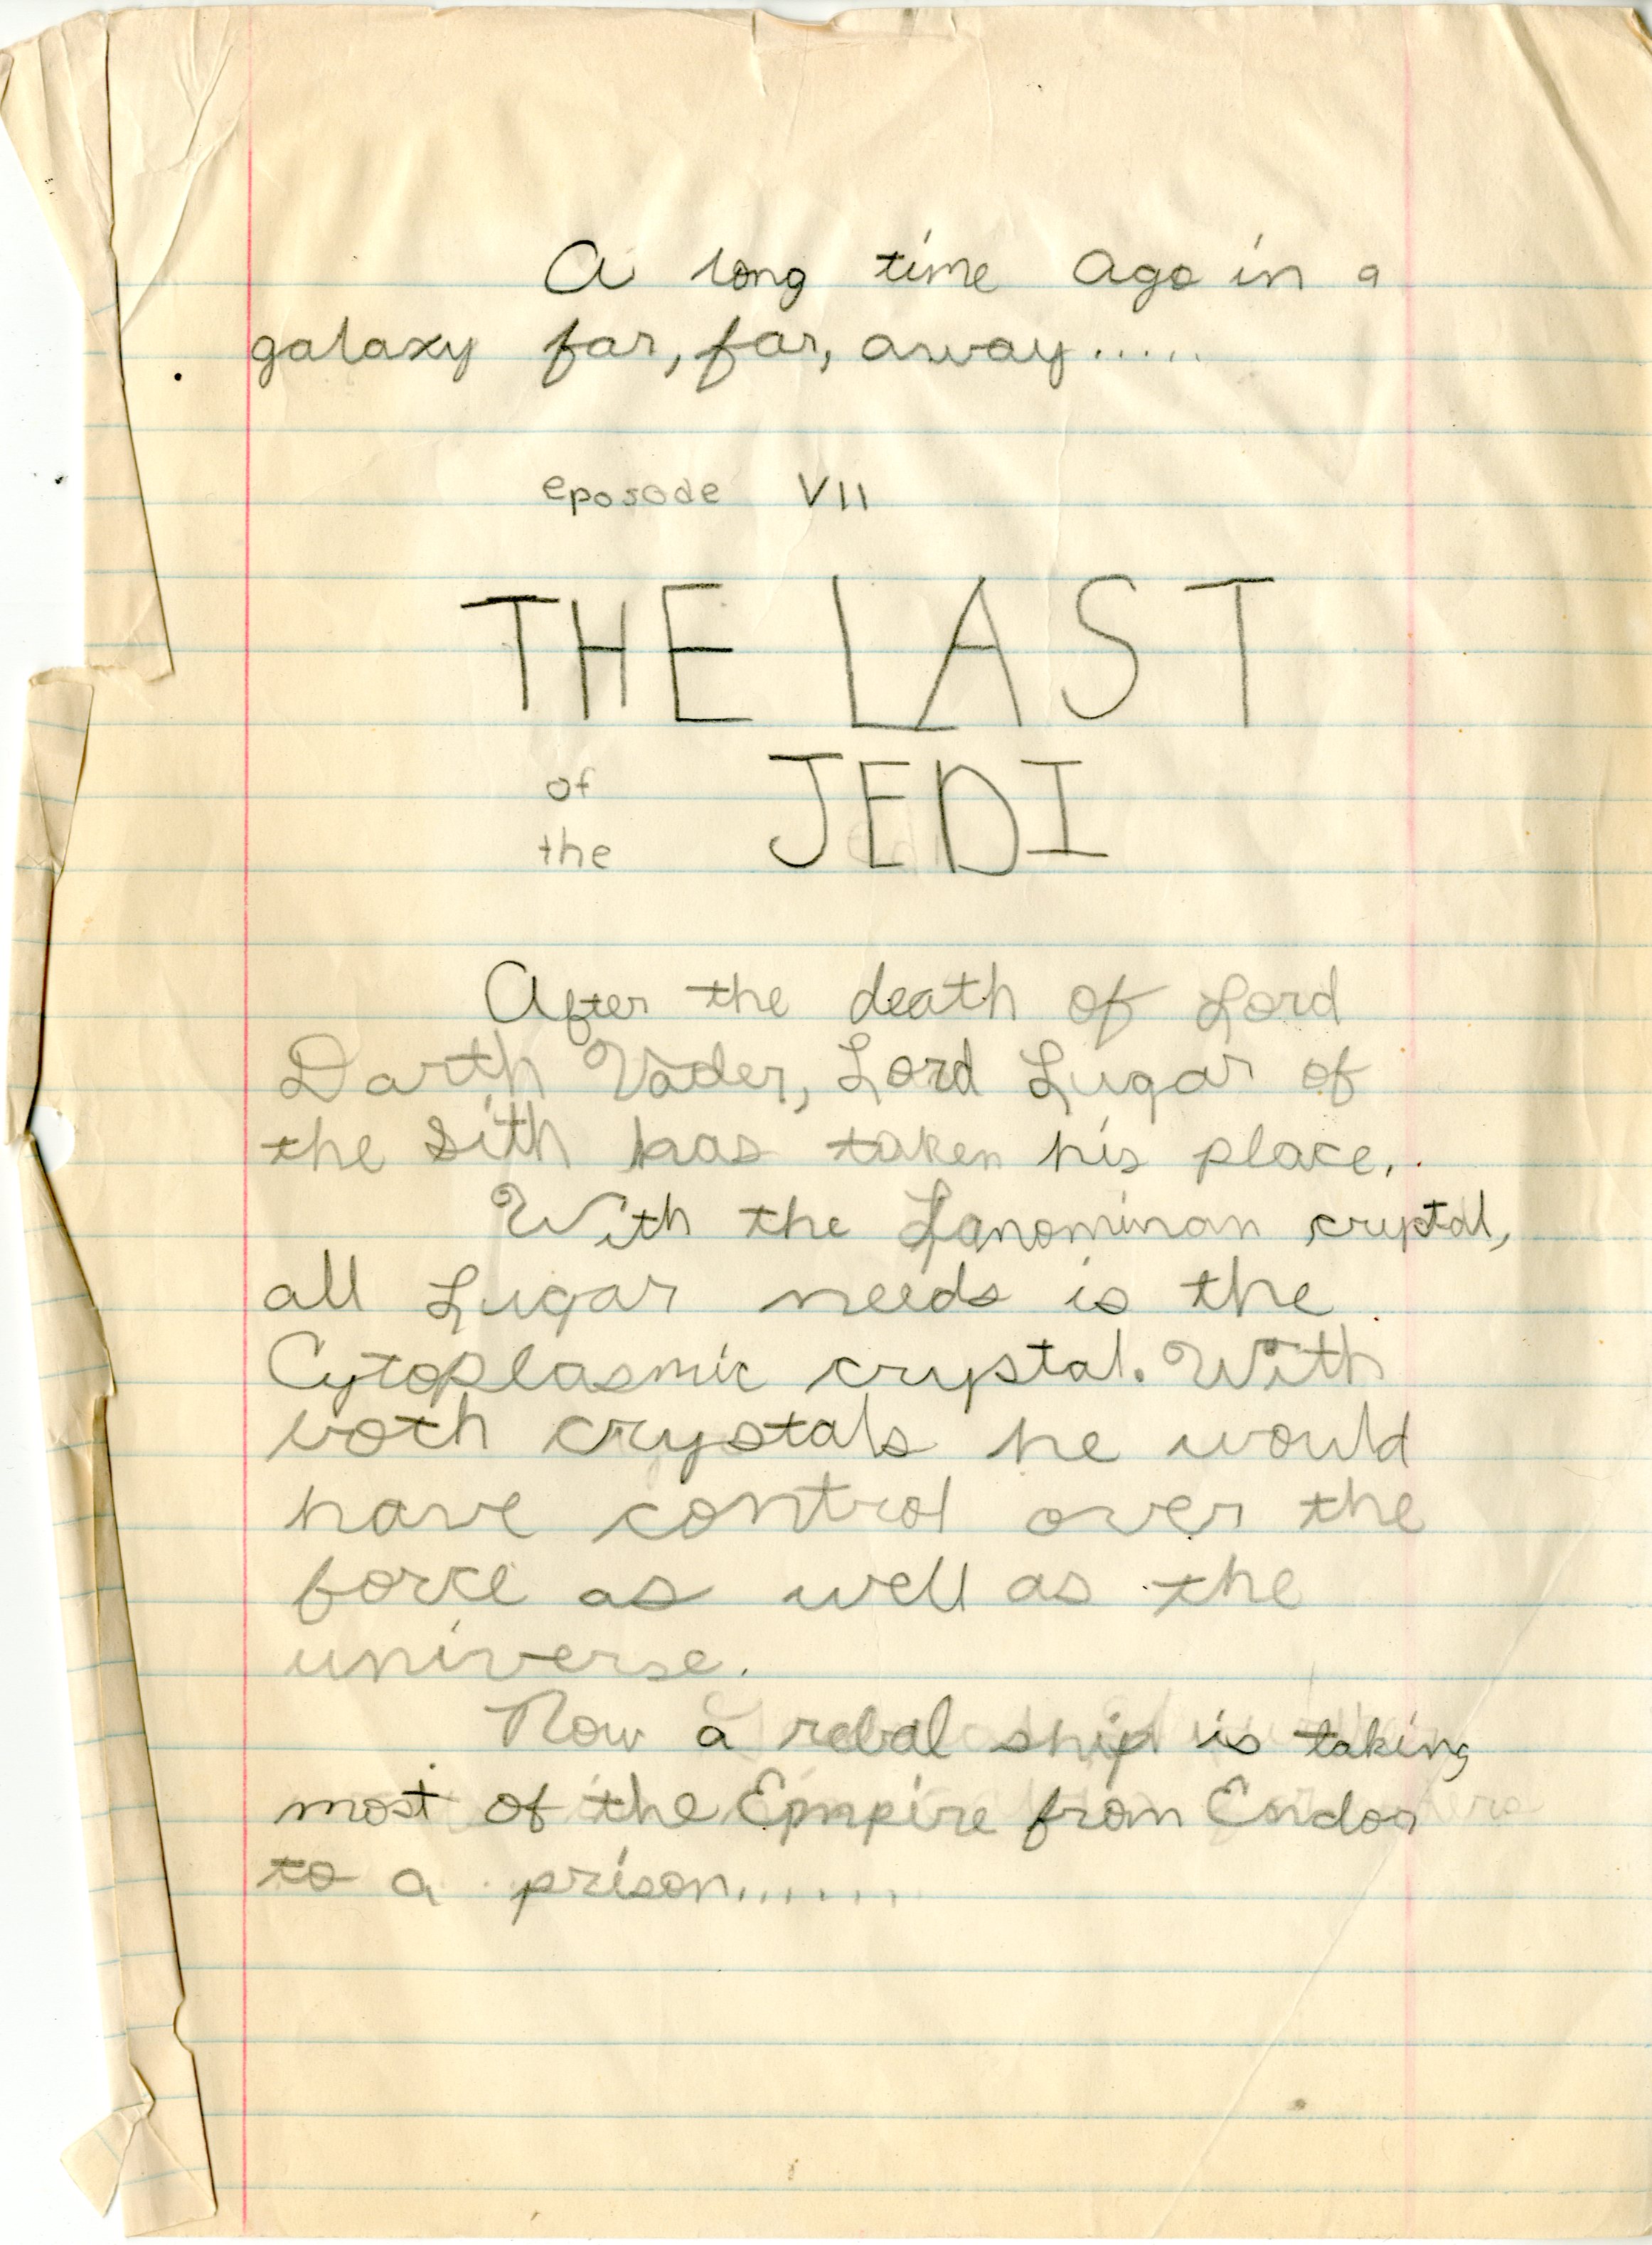 A long time ago in a
galaxy far, far, away.....
eposode VII
THE LAST
of
the JEDI
After the death of Lord
Darth Vader, Lord Lugar of
the Sith has taken his place.
With the Lanominan cryptal,
all Lugar needs is the
Cytoplasmic cryptal. With
both crystals he would
have control over the
force as well as the
universe.
Now a rebal ship is taking
most of the Empire from Endor
to a prison.......